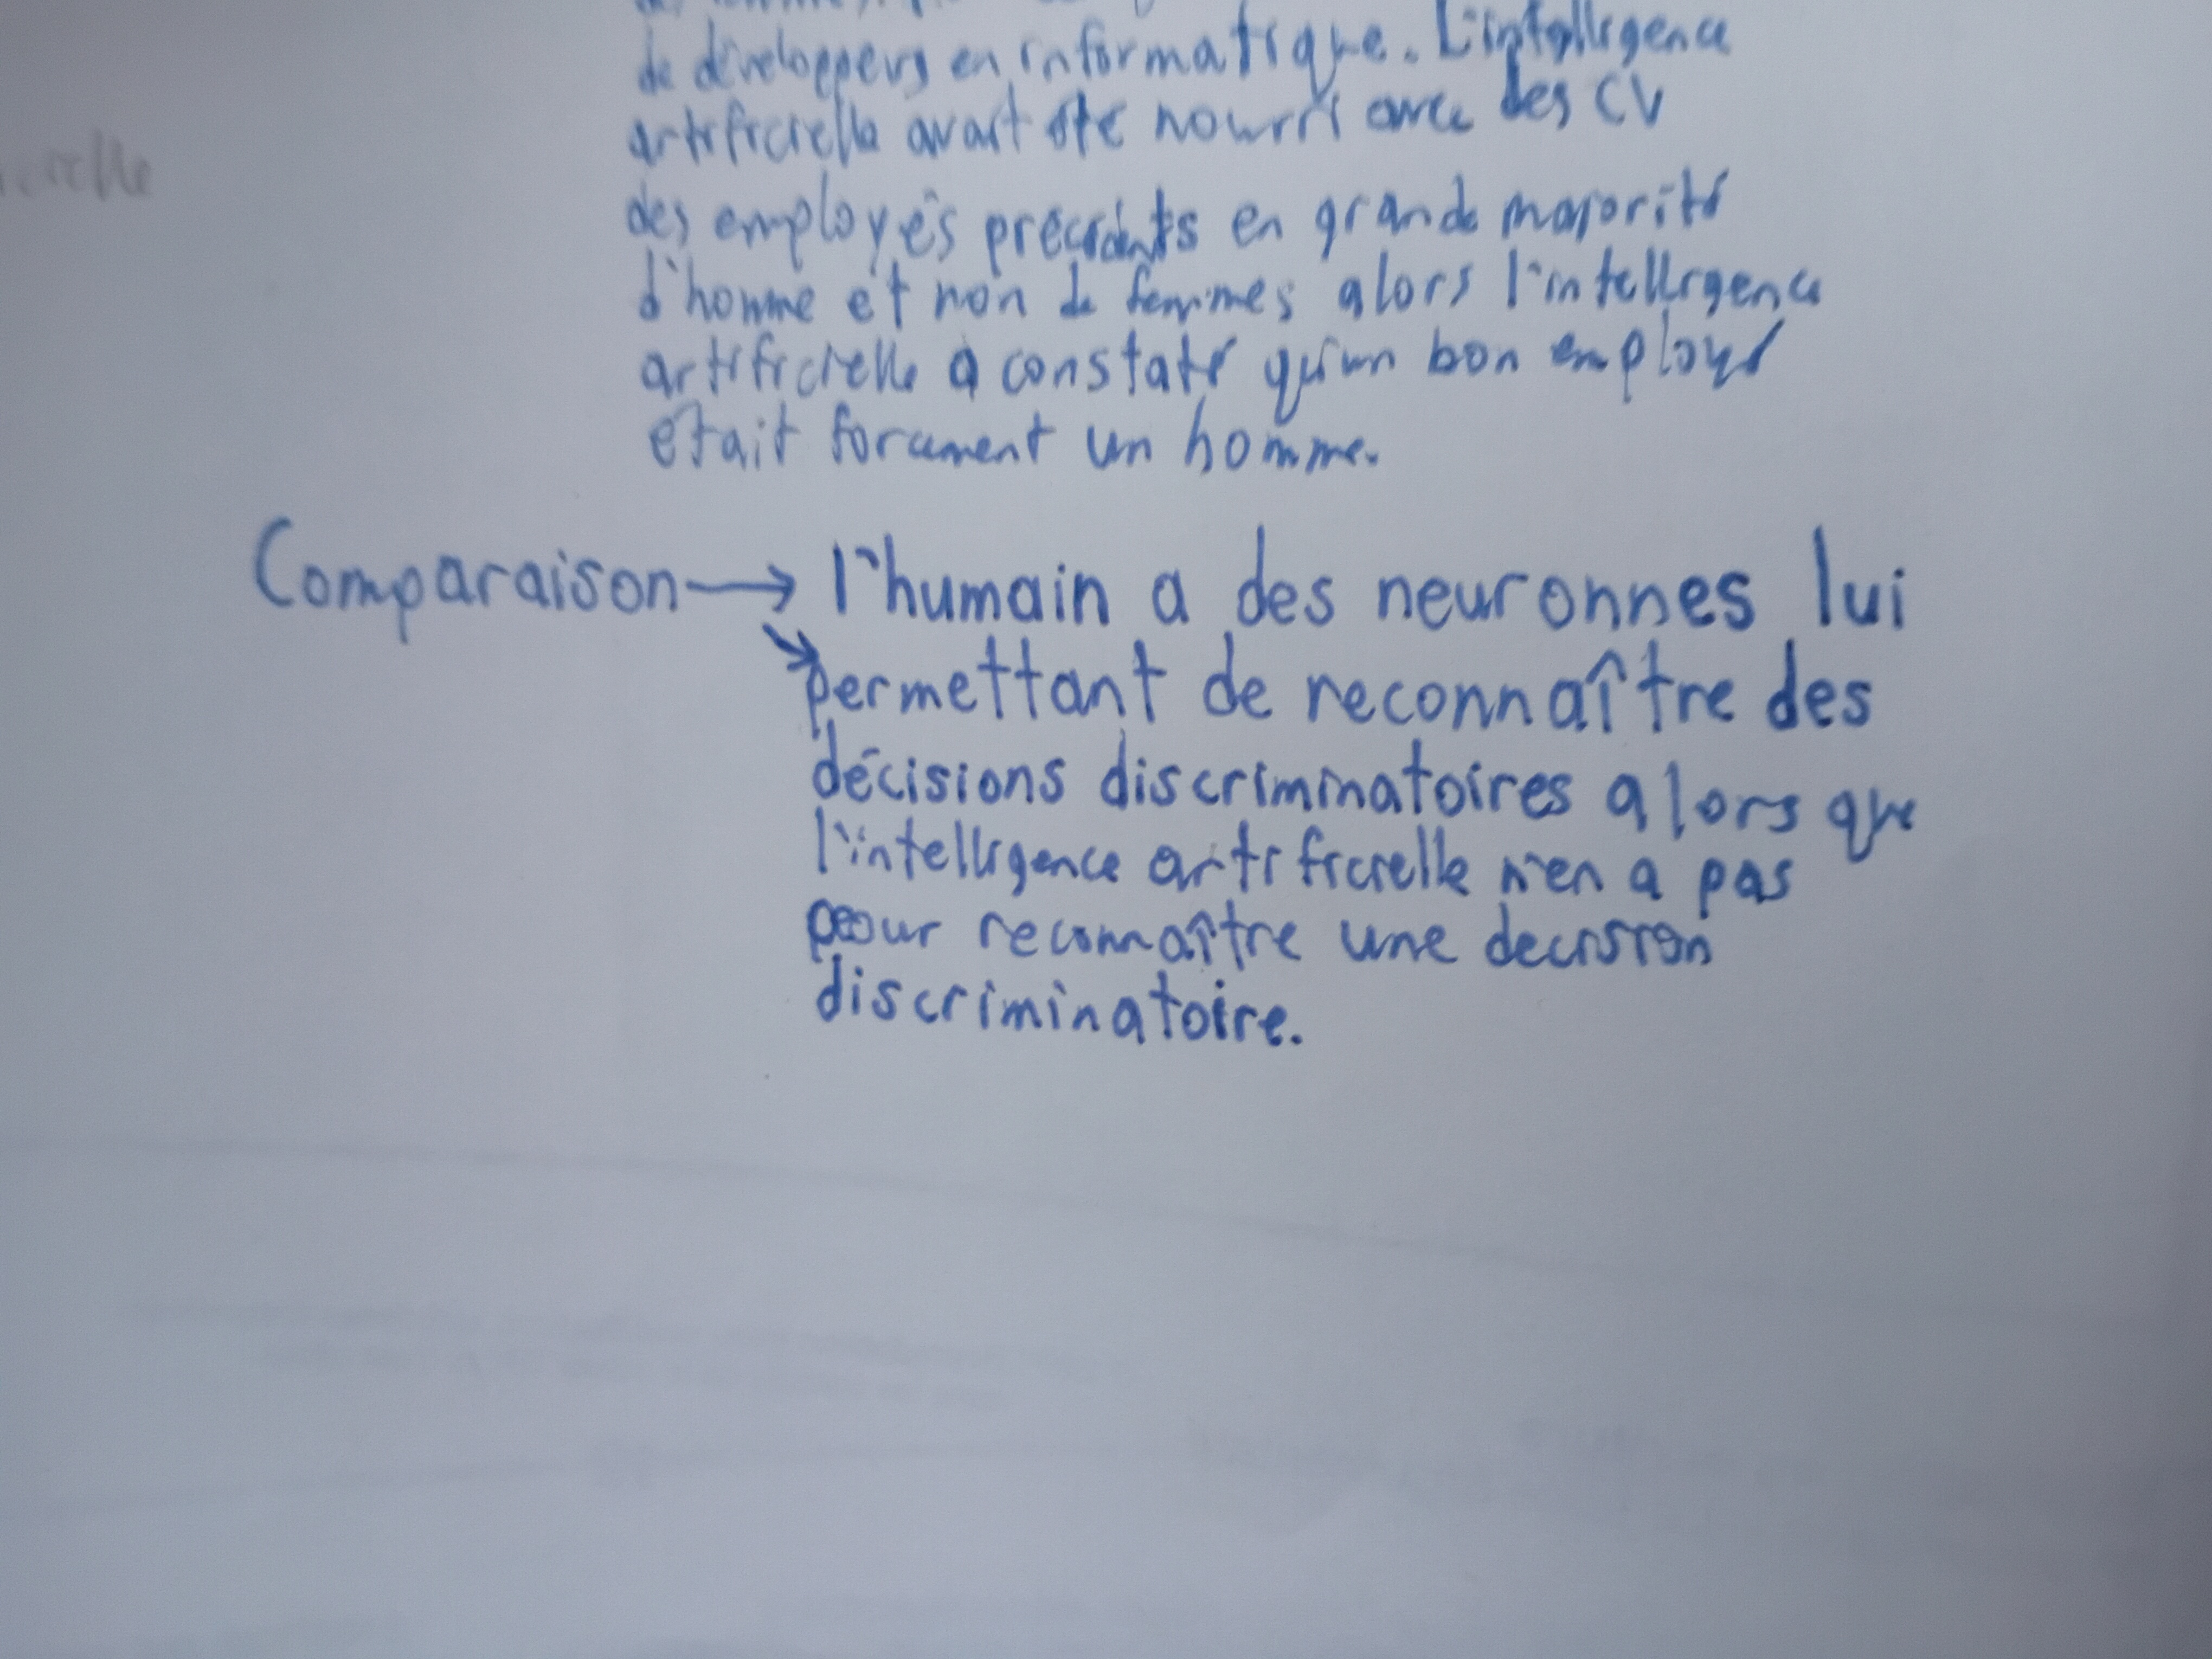 de développeurs en informatique. L'intelligence
artificielle avait été nourri avec des CV
des employés précédents en grande majorité
d'homme et non de femmes alors l'intelligence
artificielle a constaté qu'un bon employé
était forcement un homme.
Comparaison → l'humain a des neuronnes lui
permettant de reconnaître des
décisions discriminatoires alors que
l'intelligence artificielle n'en a pas
pour reconnaître une decision
discriminatoire.